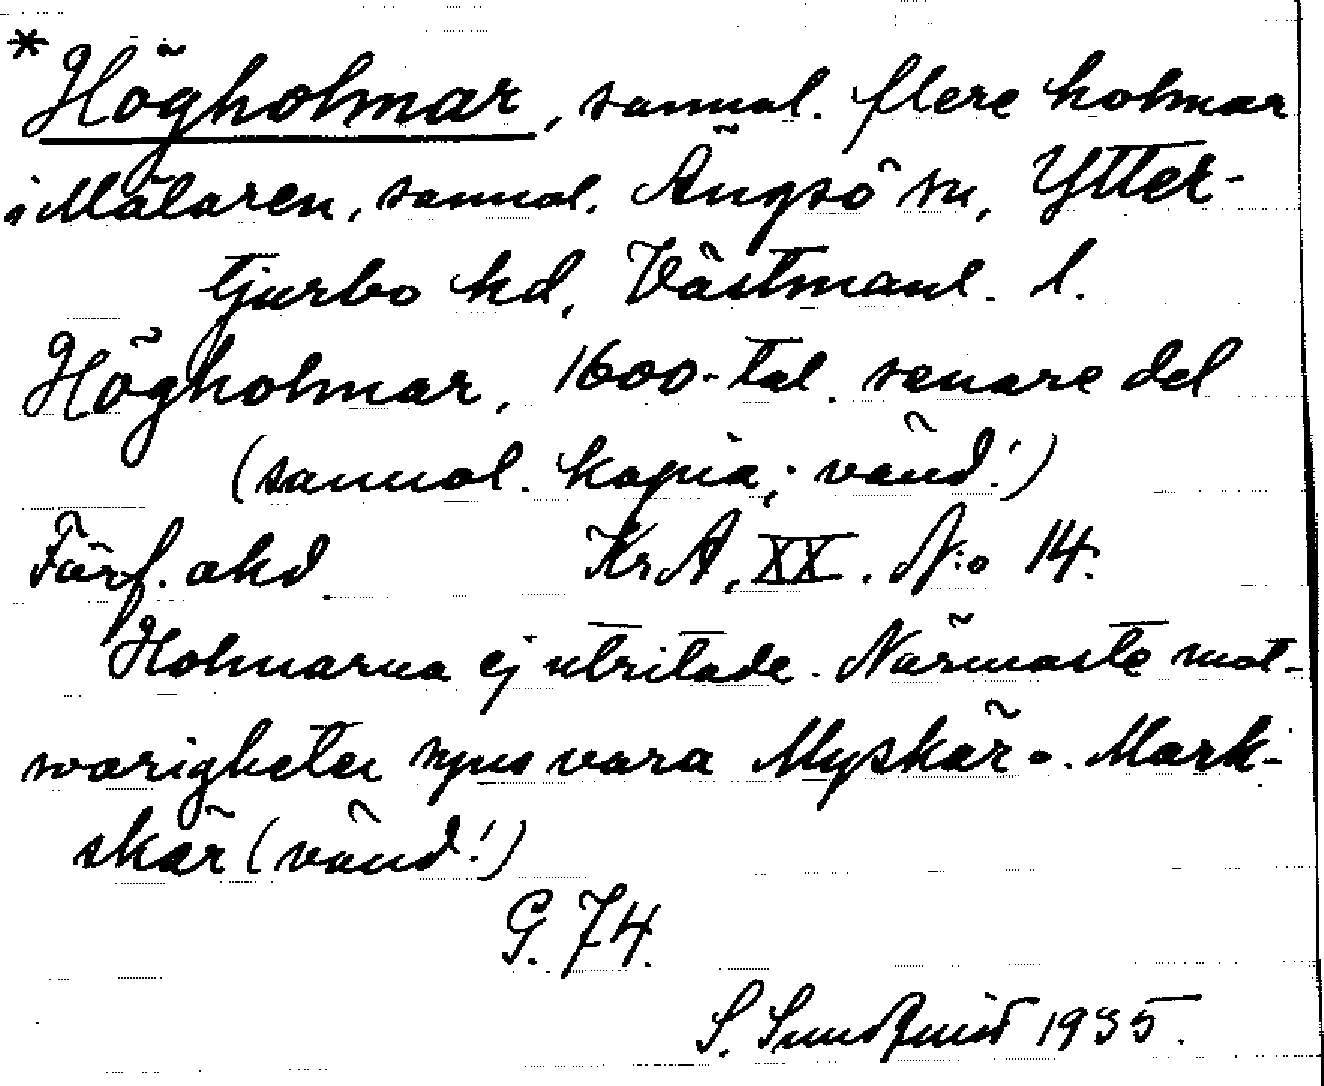 * Högholmar, sannol. flere holmar
i Mälaren, sannol. Ängsö sn, Ytter-
tjurbo hd, Västmanl. l.
Högholmar, 1600-tal. senare del
(sannol. kopia; vänd!)
Förf. okd KrA, XX. N:o 14.
Holmarna ej utritade. Närmaste mot-
svarigheter synes vara Myskär o. Mark-
skär (vänd!)
G. 74.
S. Sundquist 1935.